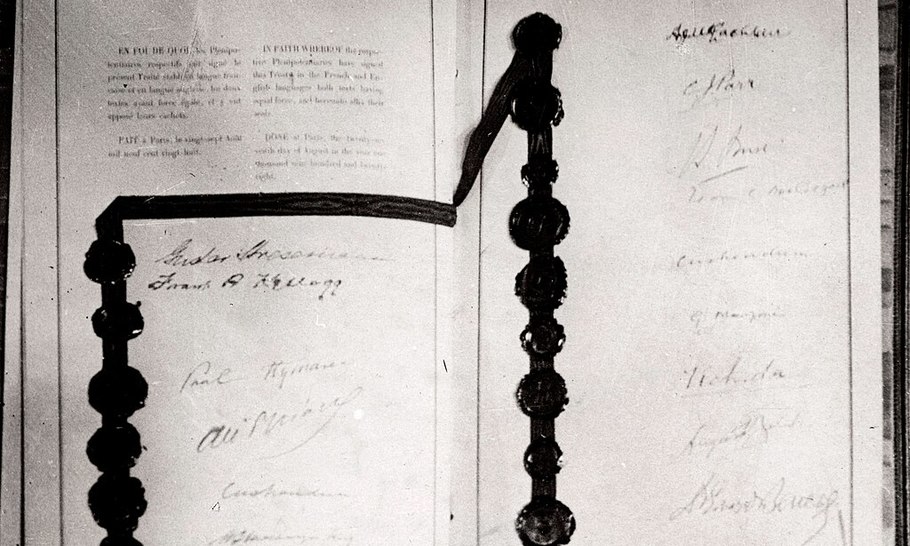 EN FOI DE QUOI, les Plénipo-
tentiaires respectifs ont signé le
présent Traité établi en langue fran-
çaise et en langue anglaise, les deux
textes ayant force égale, et y ont
apposé leurs cachets.
FAIT à Paris, le vingt-sept Août
mil neuf cent vingt-huit.
IN FAITH WHEREOF the respec-
tive Plenipotentiaries have signed
this Treaty in the French and En-
glish languages both texts having
equal force, and hereunto affix their
seals.
DONE at Paris, the twenty-
seventh day of August in the year one
thousand nine hundred and twenty-
eight.
Gustav Stresemann
Frank B Kellogg
Paul Hymans
Ari Briand
Cushendun
W. L. Mackenzie King
A. J. McLachlan
C. J. Parr
Cushendun
G. Manzoni
Uchida
August Zaleski